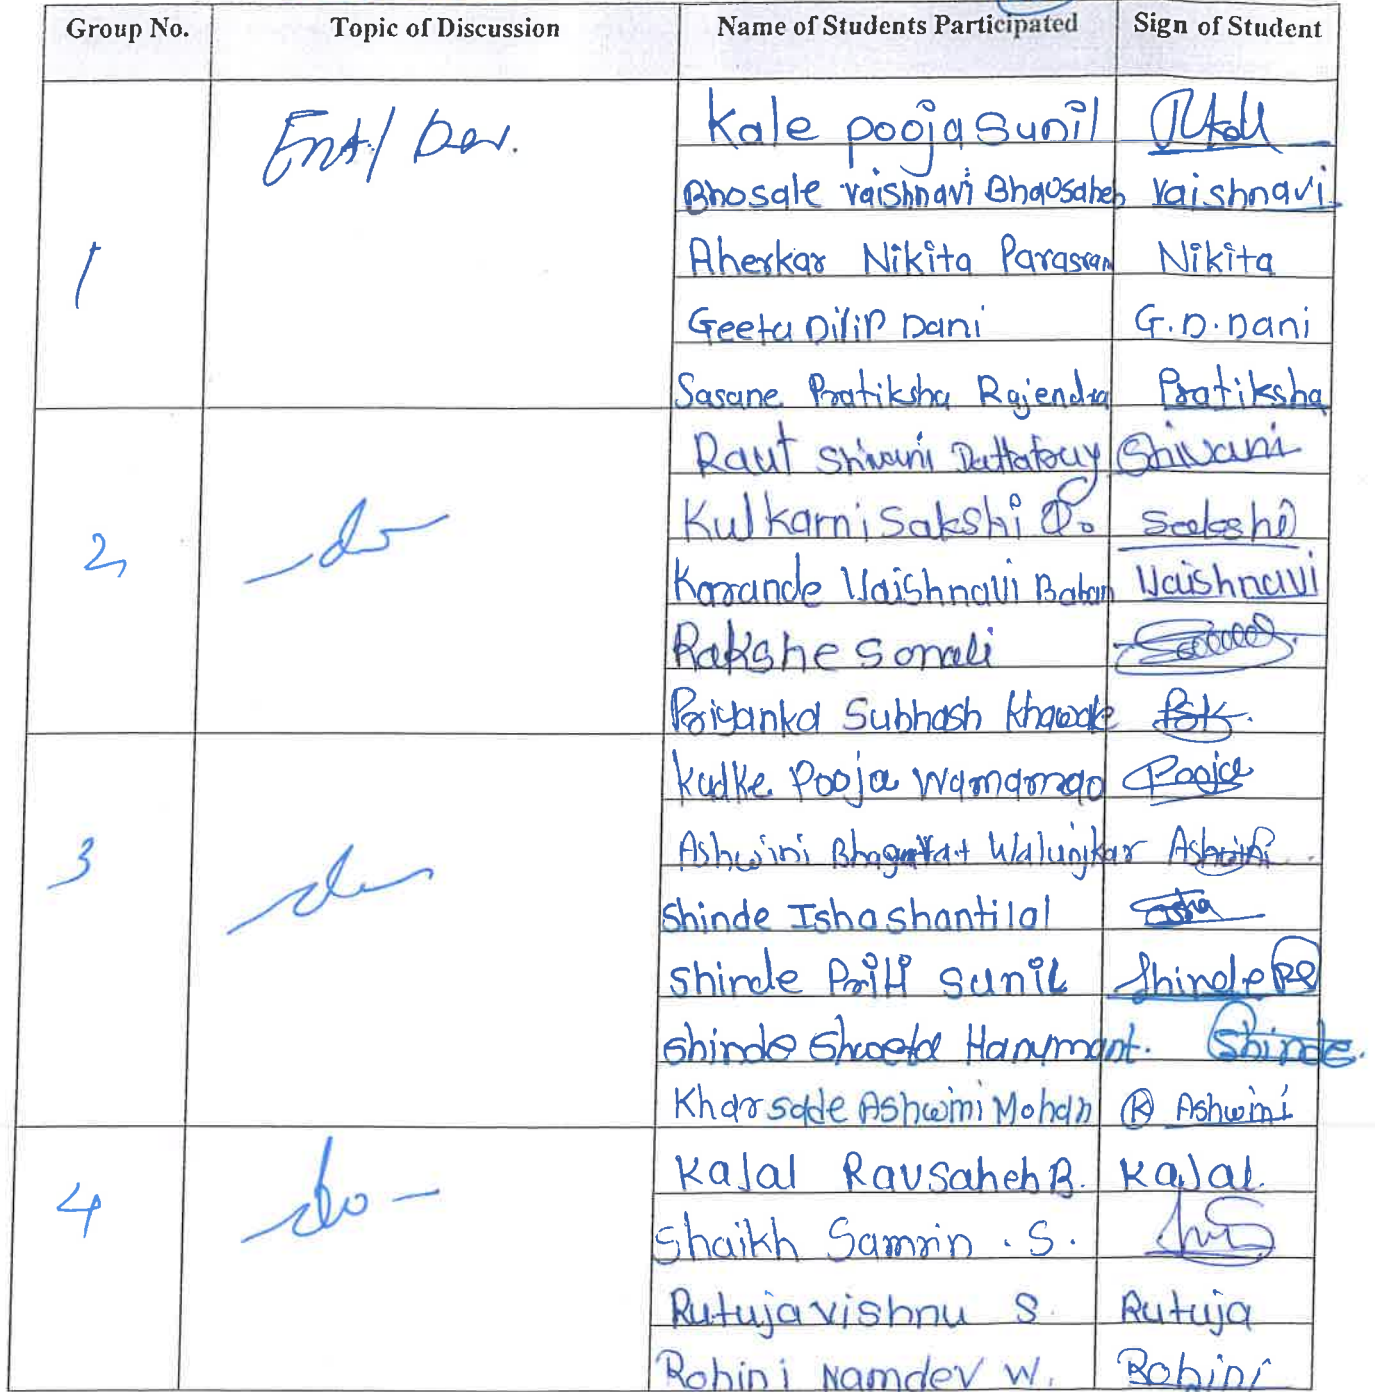 Group No. Topic of Discussion Name of Students Participated Sign of Student
1 Ent/ Dev. Kale Pooja Sunil
Bhosale Vaishnavi Bhausaheb Vaishnavi
Aherkar Nikita Parasram Nikita
Geeta Dilip Dani G.D.Dani
Sasane Pratiksha Rajendra Pratiksha
2 do Raut Shivani Shivani
Kulkarni Sakshi D. Sakshi
Karande Vaishnavi Baban Vaishnavi
Rakshe Sonali
Priyanka Subhash Khawale PSK.
3 do Kudke Pooja Wamanrao Pooja
Ashwini Bhagwat Walunjkar Ashwini
Shinde Isha Shantilal Isha
Shinde Priti Sunil Shinde PS
Shinde Shweta Hanumant. Shinde.
Kharsade Ashwini Mohan K Ashwini
4 do - Kajal Rausaheb B. Kajal.
Shaikh Samrin . S.
Rutuja vishnu S. Rutuja
Rohini Namdev W. Rohini